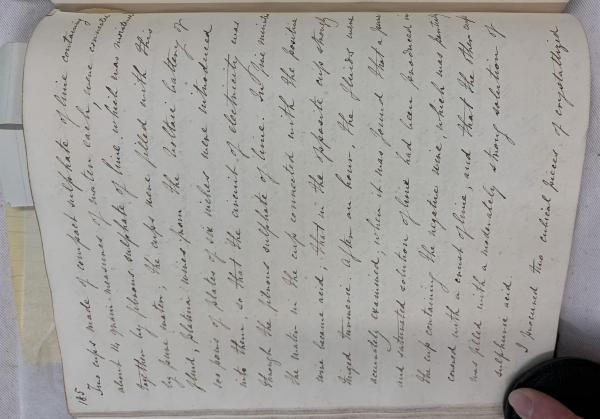 185
Two cups made of compact sulphate of lime containing
about 14 grain measures of water each were connected
together by fibrous sulphate of lime which was moistened
by pure water; the cups were filled with this
fluid, platina wires from the Voltaic battery of
100 pairs of plates of six inches were introduced
into them so that the circuit of electricity was
through the fibrous sulphate of lime. In five minutes
the water in the cup connected with the positive
wire became acid; that in the opposite cup strongly
tinged turmeric. After an hour, the fluids were
accurately examined, when it was found that a pure
and saturated solution of lime had been produced in
the cup containing the negative wire, which was partially
covered with a crust of lime, and that the other cup
was filled with a moderately strong solution of
sulphuric acid.
I procured two cubical pieces of crystallized